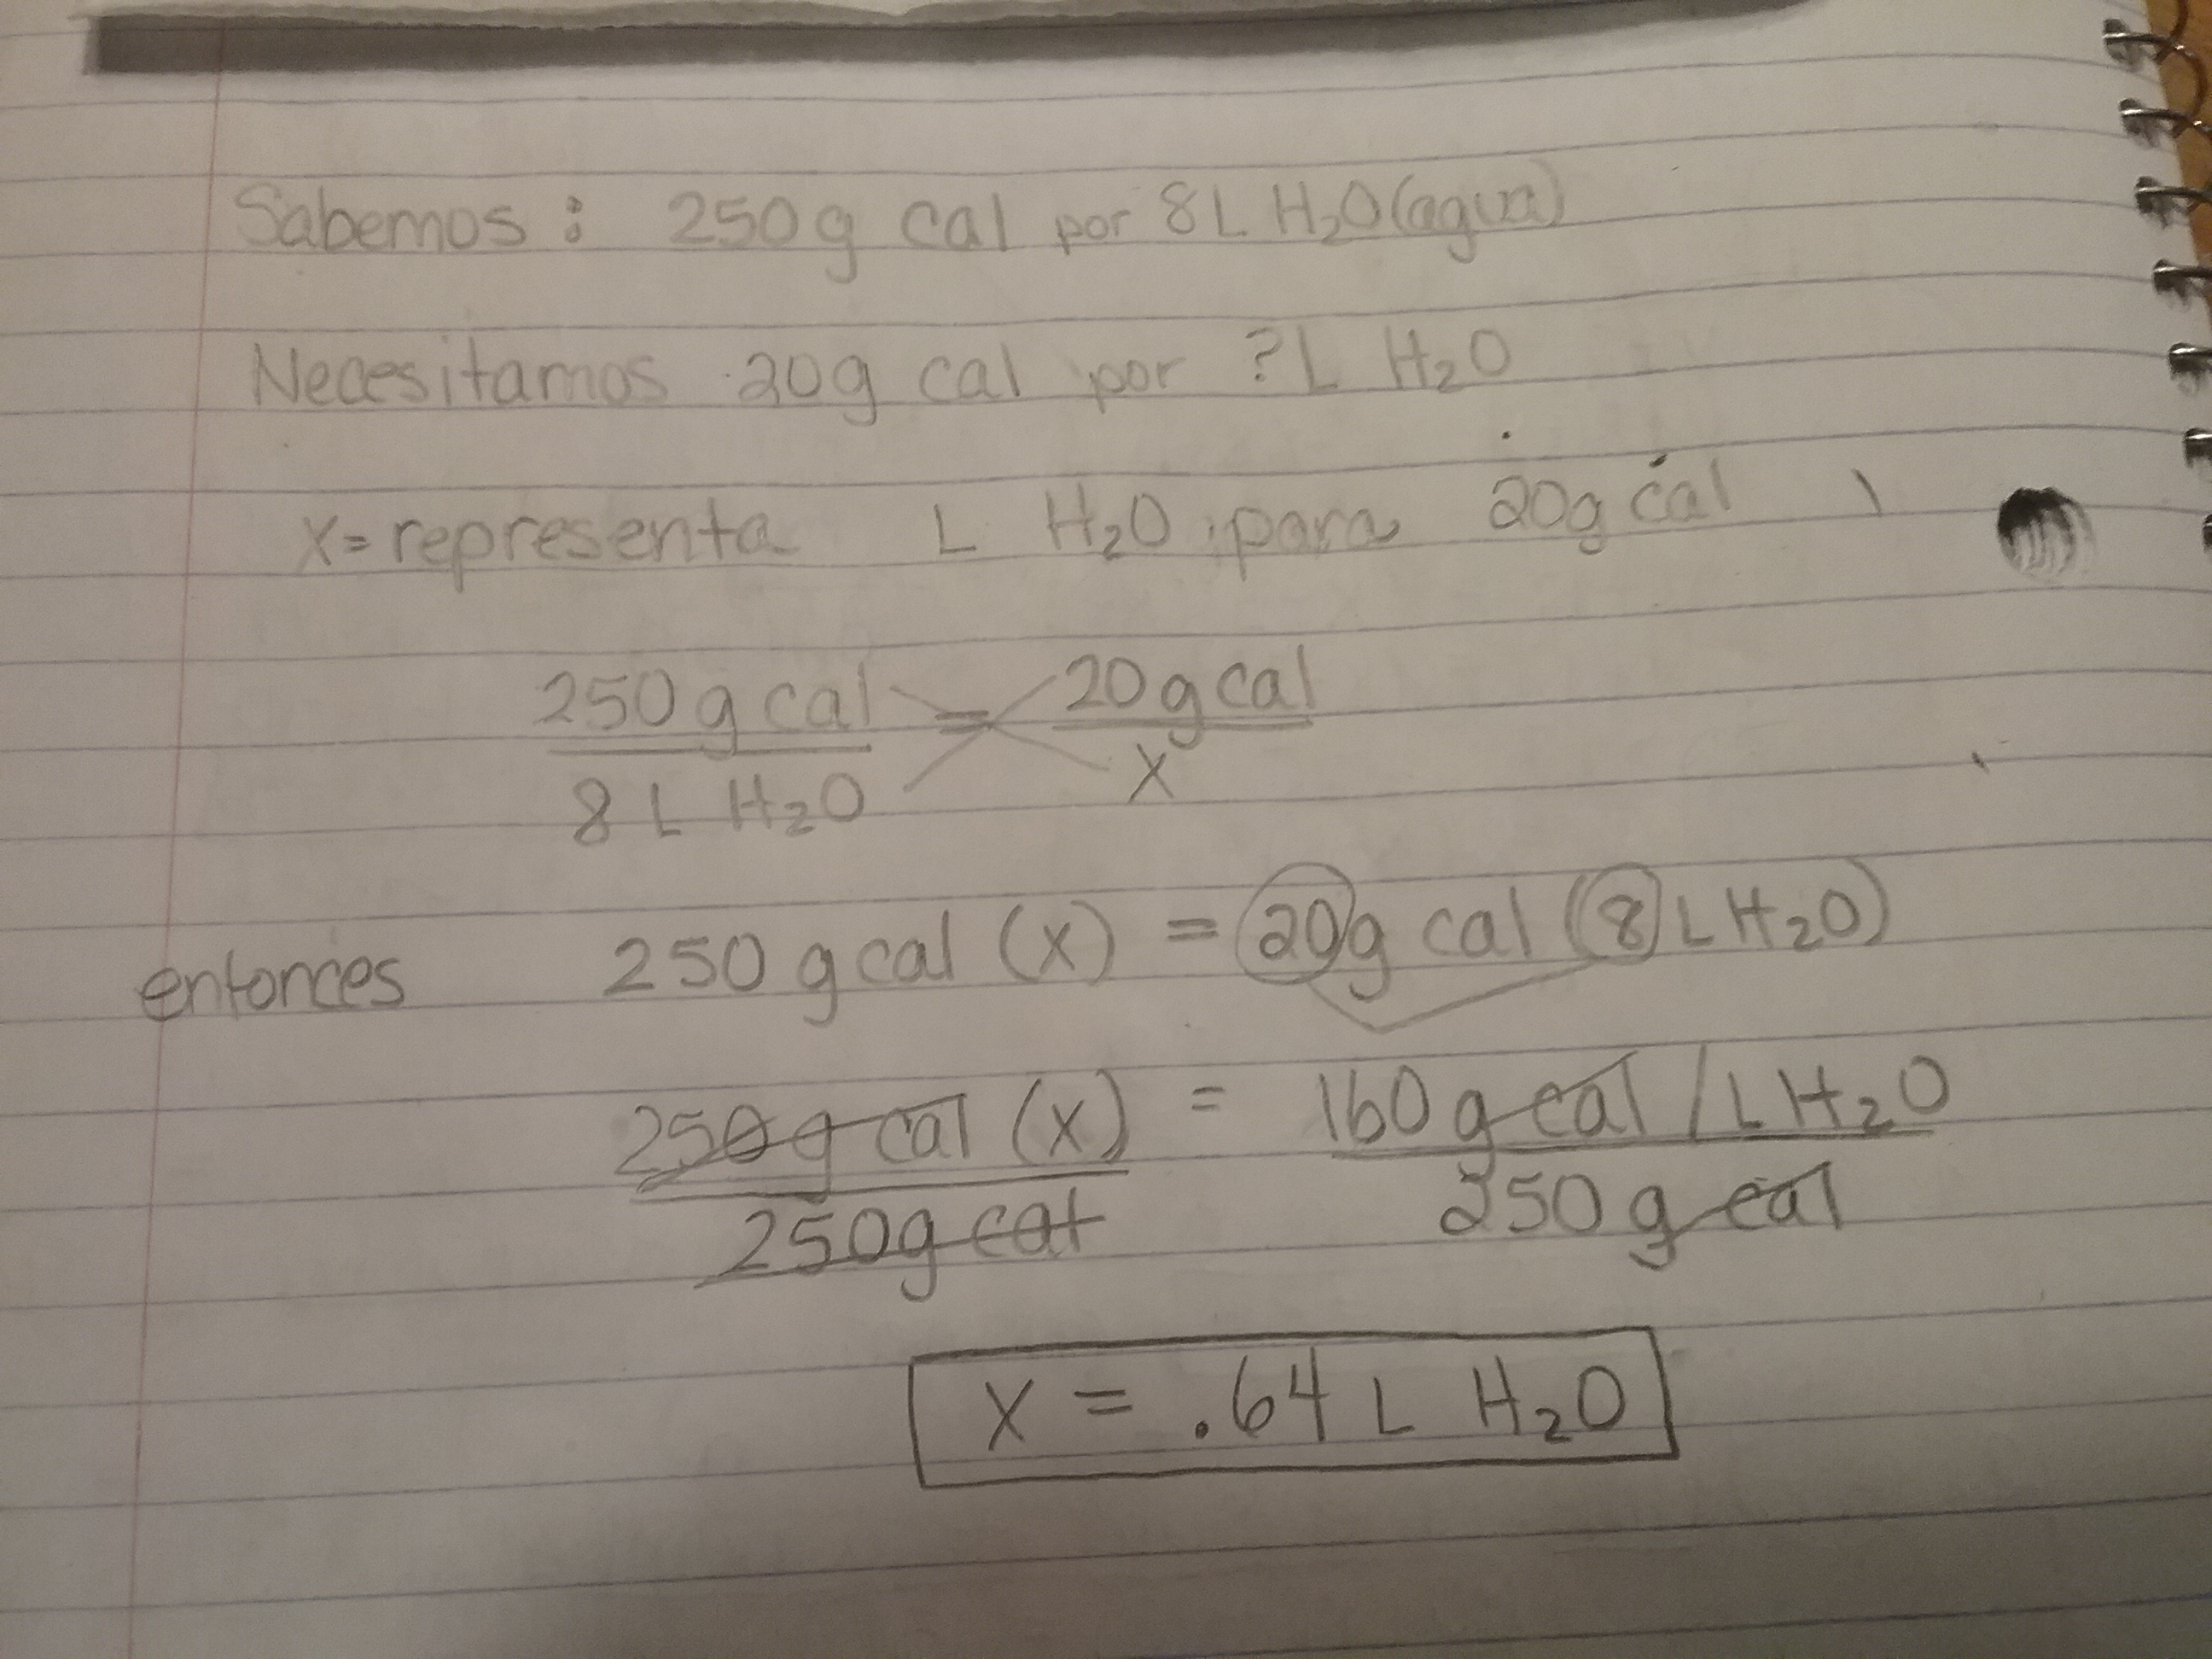 Sabemos: 250g cal por 8L H₂O (agua)
Necesitamos 20g cal por ?L H₂O
X= representa L H₂O para 20g cal
250g cal = 20g cal
8 L H₂O X
entonces 250 g cal (x) = 20g cal (8 L H₂O)
250g cal (x) = 160 g cal / L H₂O
250g cal 250 g cal
X = .64 L H₂O